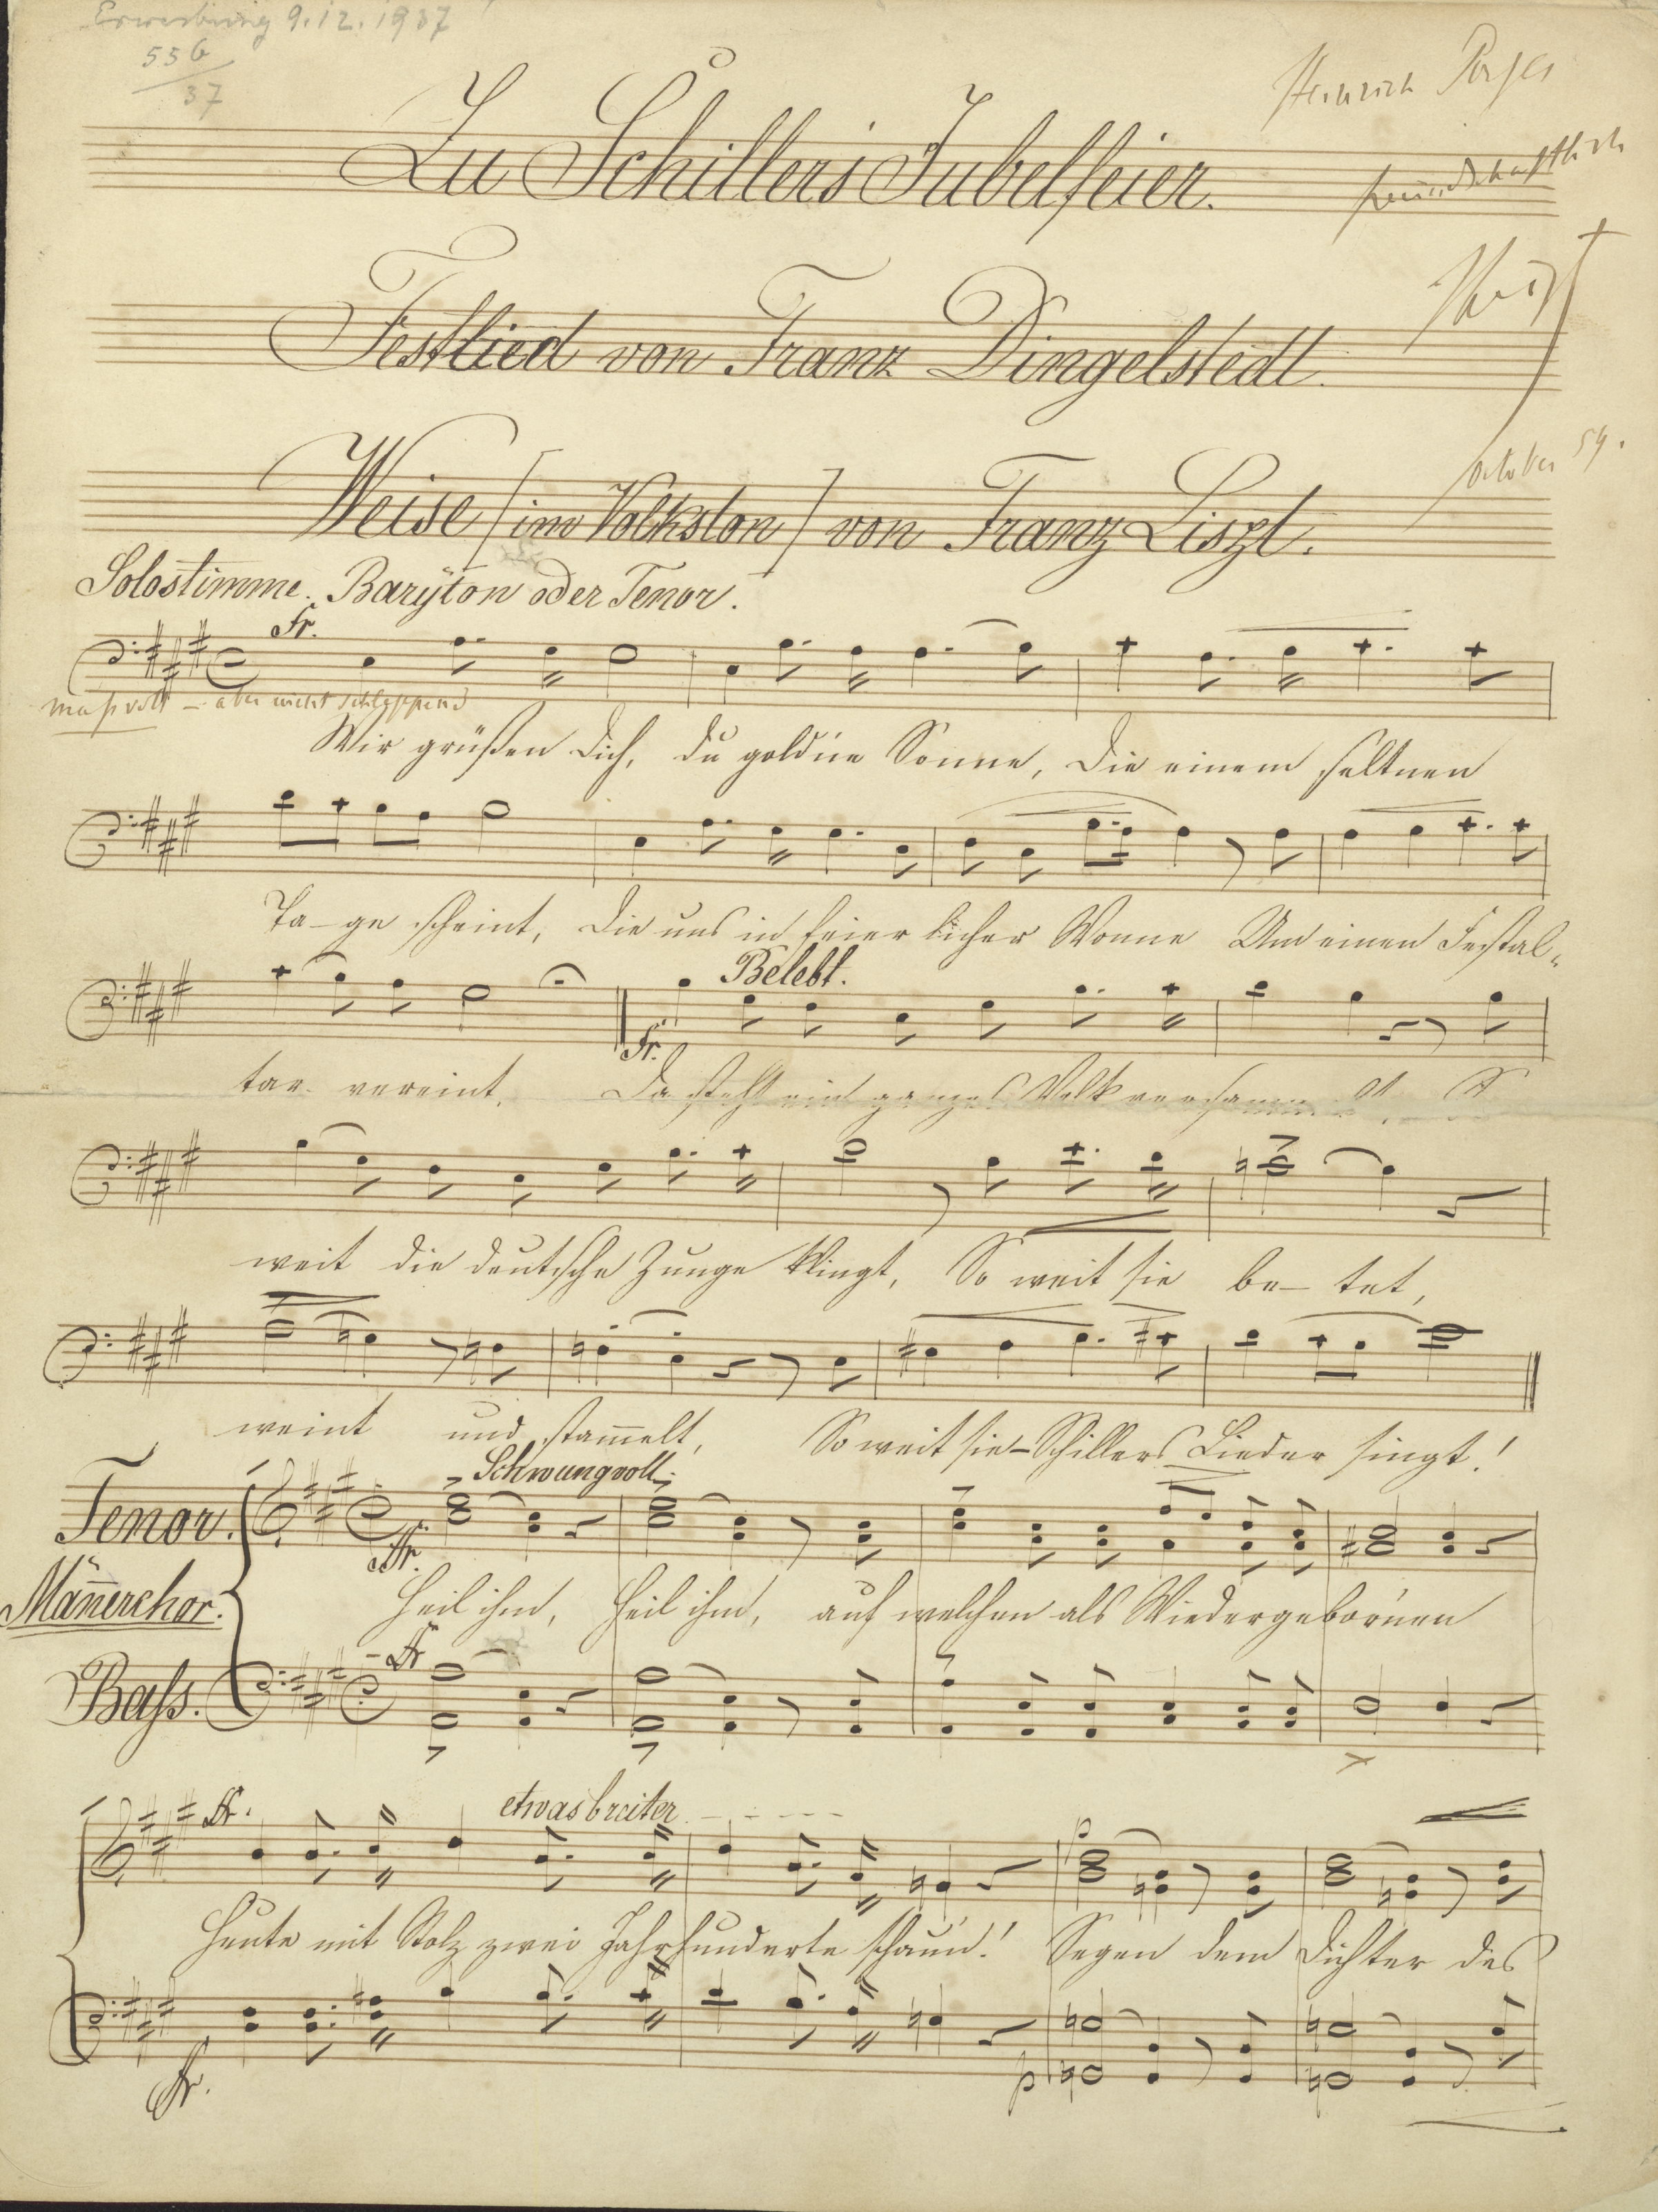 Erwerbung 9.12.1937
556
37
Heinrich Porges
freundschaftlich
October 59.
Zu Schillers Jubelfeier.
Festlied von Franz Dingelstedt.
Weise [im Volkston] von Franz Liszt.
Solostimme. Baryton oder Tenor.
Fr.
maßvoll – aber nicht schleppend
Wir grüßen Dich, du gold'ne Sonne, Die einem seltnen
Ta-ge scheint, Die uns in feierlicher Wonne Um einen Festal-
Belebt.
Fr.
tar vereint. Da steht ein ganzes Volk versammelt, So
weit die deutsche Zunge klingt, So weit sie be- tet,
weint und stam̅elt, So weit sie Schillers Lieder singt!
Schwungvoll.
Tenor.
Män̅erchor.
Heil ihm, Heil ihm, auf welchen als Wiedergebor'nen
Bass.
etwas breiter
Heute mit Stolz zwei Jahrhunderte schaun'! Segen dem Dichter des
p